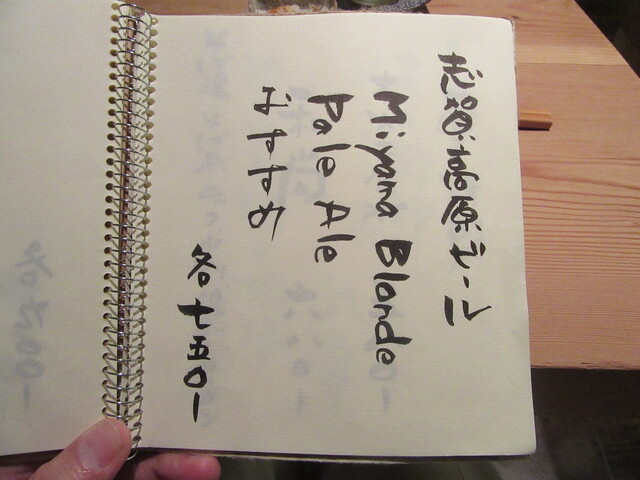 志賀高原ビール
Miyama Blonde
Pale Ale
おすすめ
各七五〇ー